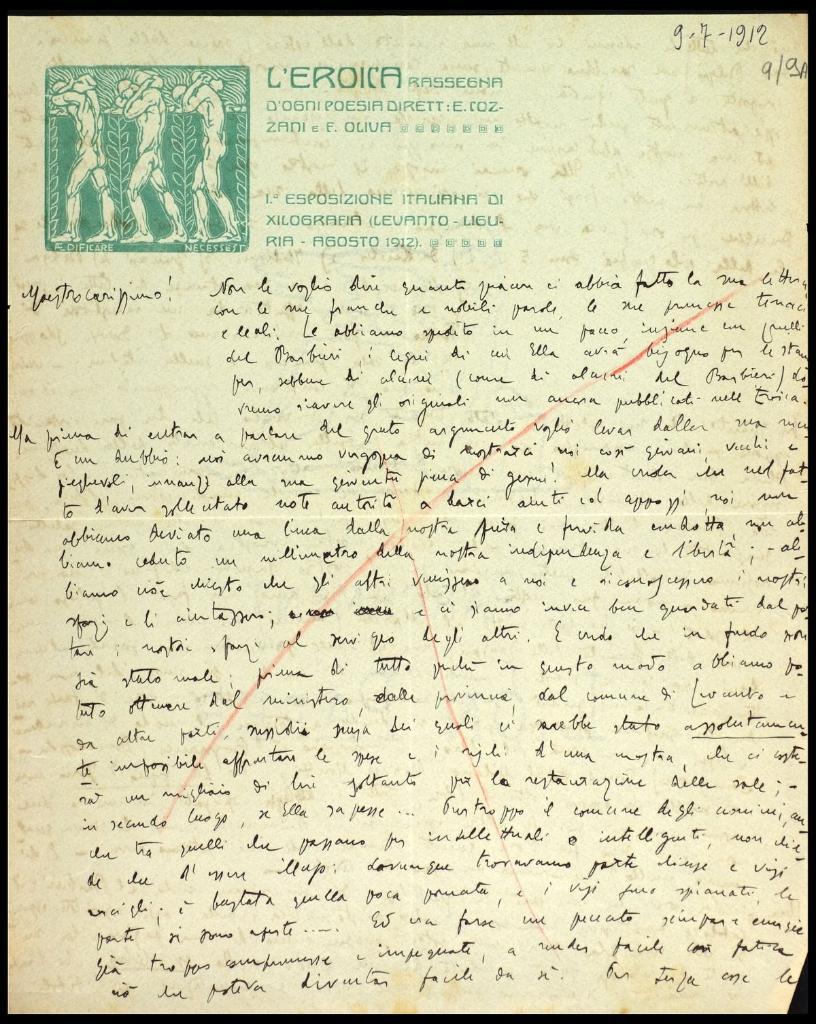 9-7-1912
9/9A
L'EROICA RASSEGNA
D'OGNI POESIA DIRETT: E. COZ-
ZANI E F. OLIVA
I.ª ESPOSIZIONE ITALIANA DI
XILOGRAFIA (LEVANTO - LIGU-
RIA - AGOSTO 1912).
ÆDIFICARE NECESSE EST
Maestro carissimo! Non le voglio dire quanto piacere ci abbia fatto la sua lettera
con le sue franche e nobili parole, le sue promesse
e leali. Le abbiamo spedito in un pacco, insieme con quelli
del Barbieri i legni di cui Ella avrà bisogno per le stam
pe, sebbene di alcuni (come di alcuni del Barbieri) do
vremo riavere gli originali non ancora pubblicati nell'Eroica.
Ma prima di entrare a parlare del grato argomento voglio levar dalla sua
E un dubbio: noi avremmo vergogna di mostrarci noi così giovani, vecchi e
pieghevoli, innanzi alla sua gioventù piena di Ma creda che nel fat
to d'aver sollecitato note autorità a darci aiuti ed appoggi, noi non
abbiamo deviato una linea dalla nostra e condotta, non ab
biamo ceduto un millimetro della nostra indipendenza e libertà; - ab
biamo cioè chiesto che gli altri venissero a noi e riconoscessero i nostri
sforzi e li aiutassero; e ci siamo invece ben guardati dal por
tare i nostri sforzi al servigio degli altri. E credo che in fondo non
sia stato male; prima di tutto perché in questo modo abbiamo po
tuto ottenere dal ministero, dalla provincia, dal comune di Levanto e
da altre parti, sussidii senza dei quali ci sarebbe stato assolutamen
te impossibile affrontare le spese e i rischi d'una mostra, che ci coste
rà un migliaio di lire soltanto per la restaurazione delle sale; -
in secondo luogo, se Ella sapesse ... Purtroppo il comune degli uomini, an
che tra quelli che passano per intellettuali e intelligenti, non
de che d'esser dovunque trovavamo porte chiuse e visi
arcigli; è bastata quella poca e i visi sono spianati, le
porte si sono aperte ..... Ed era forse un peccato sciupare energie
già troppo compromesse e impegnate, a render facile con fatica
ciò che poteva diventar facile da sé. Per terza cosa le